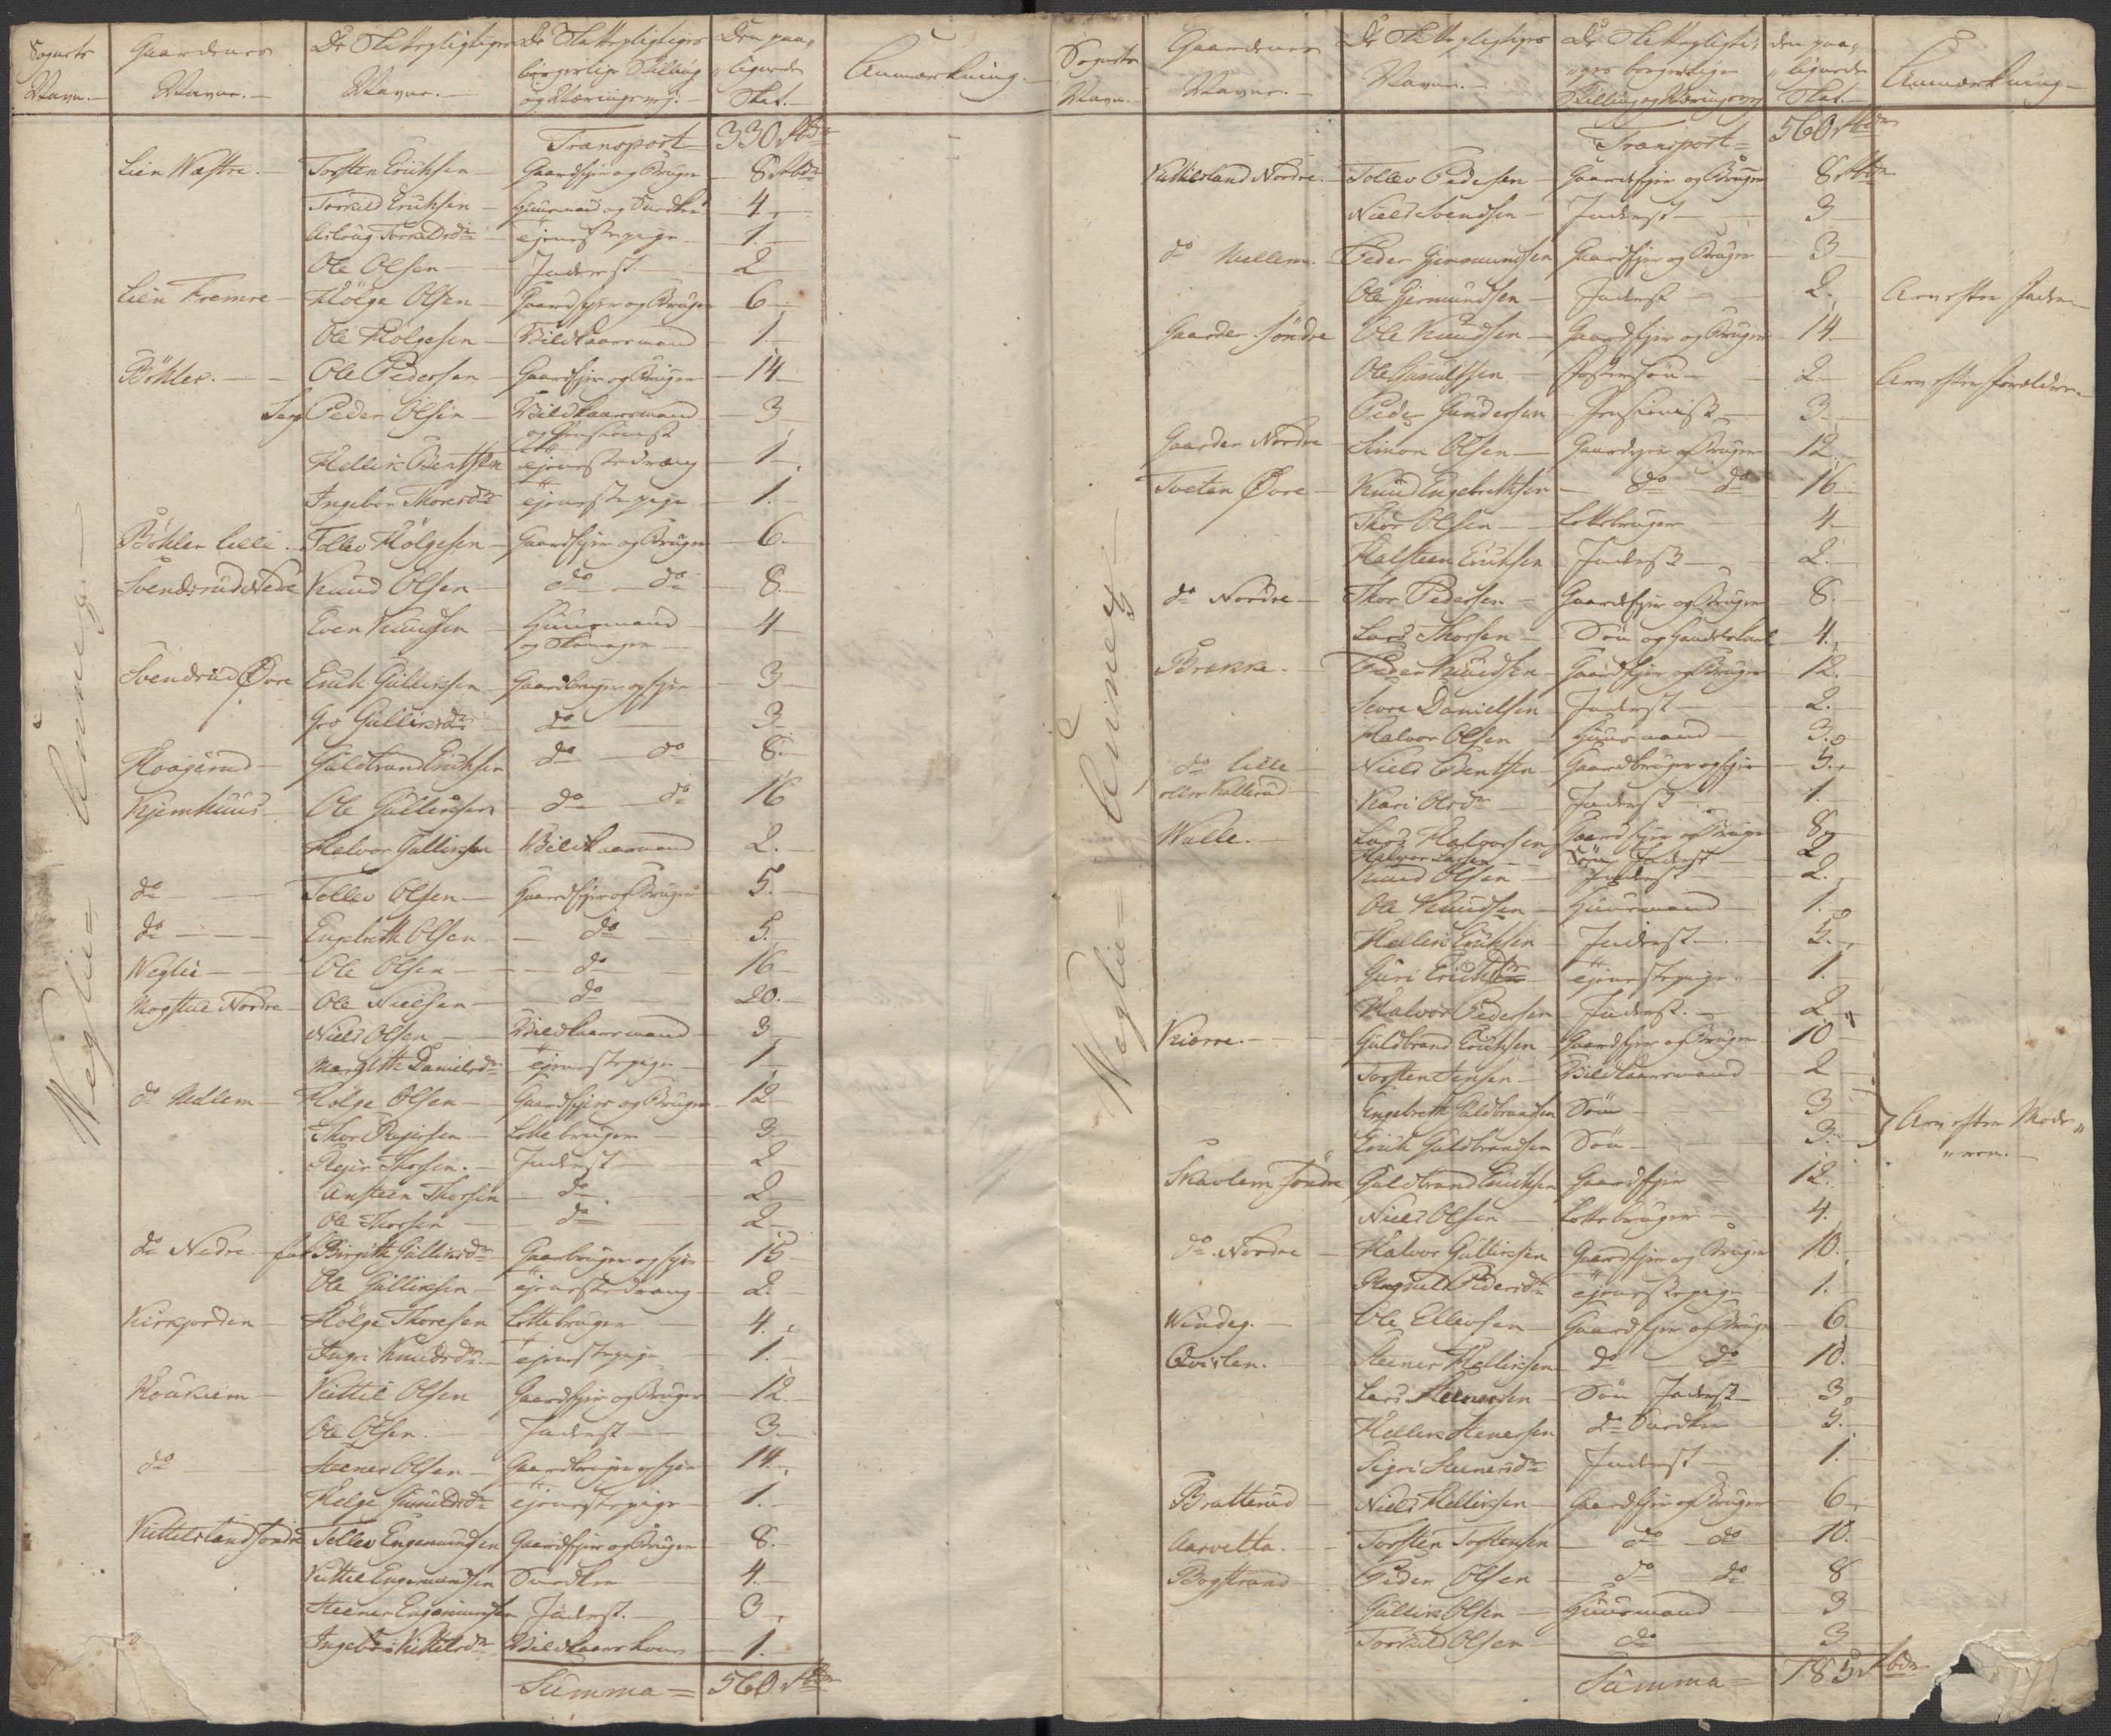 Sognets Navn.- Gaardenes Navne.- De Skattepligtiges Navne.- De Skattepligtiges borgerlige Stilling og Næringsvej.- Den paalignede Skat.- Anmærkning.-
Weglie= Annex-
Transport 330 Rbdr
Lien Wæstre.- Torsten Erichsen- Gaardejer og Bruger- 8 Rbdr
Torkild Erichsen- Huusmand og Snedker 4.-
Aslaug Torkildsdr- ejeneste pige- 1.-
Ole Olsen- Inderst- 2
Lien Fremre- Hölge Olsen- Gaardejer og Bruger 6.-
Ole Hölgesen- Vilkaarsmand- 1.-
Böhler.- Ole Pedersen- Gaardejer og Bruger- 14-
Peder Olsen- Vilkaarsmand og Pensionist 3-
Hellik Bentsen ejenestedræng 1-
Ingebor Thoresdr ejeneste pige- 1.-
Böhler lille- Tollev Hölgesen- Gaardejer og Bruger- 6.-
Svendsrud Nedre Knud Olsen- do- do- 8.-
Even Knudsen- Huusmand og Skomager- 4-
Svendsrud Øvre Erich Gullicksen- Gaardbruger og ejer- 3-
Gro Gulliksdr do- 3-
Haagerud- Guldbrand Erichsen do- do 8.-
Kjemhuus- Ole Gulliksen do- do 16
Halvor Gulliksen Vilkaarsmand 2.-
do- Tollev Olsen- Gaardejer og Bruger 5.-
do- Engebreth Olsen- do- 5.
Weglie- Ole Olsen- do- 16-
Mogstue Nordre- Ole Nielsen- do- 20.-
Niels Olsen- Vilkaarsmand- 3-
Margith Danielsdr- ejeneste pige- 1-
do Mellem- Hölge Olsen- Gaardejer og Bruger- 12-
Thor Rejersen- Lottebruger- 3-
Rejer Thorsen.- Inderst- 2
Ansteen Thorsen- do- 2-
Ole Thorsen- do- 2-
do Nedre- Birgith Gulliksdr- Gaarbruger og ejer- 15-
Ole Gulliksen- ejenestedræng- 2.-
Kirkjorden- Hölge Thoresen Lottebruger- 4.-
Ingri Knudsdr.- ejenestepige 1.-
Houkiem- Kittil Olsen Gaardejer og Bruger- 12.-
Ole Olsen.- Inderst- 3.-
do Steener Olsen- Gaardbruger og ejer- 14.-
Helge ejeneste pige- 1.-
Kittilsland søndre Tollev Engemundsen Gaardejer og Bruger- 8.-
Kittil Engemundsen Snedker- 4.-
Steener Engemundsen Inderst.- 3-
Ingebor Kittilsdr- Vilkaarskone- 1.-
Summa= 560 Rbdr
Sognets Navn.- Gaardenes Navne.- De Skattepligtiges Navne.- De Skattepligtiges borgerlige Stilling og Næringsvej Den paalignede Skat.- Anmærkning-
Weglie= Annex-
Transport= 560 Rbdr
Kittilsland Nordre- Tollev Pedersen- Gaardejer og Bruger 8 Rbdr
Niels Svendsen- Inderst- 3-
do Mellem. Peder Giermundsen Gaardejer og Bruger- 3-
Ole Giermundsen- Inderst- 2.- Arv efter Faderen
Gaarder søndre Ole Knudsen- Gaardejer og Bruger 14.-
Ole Gundersen- 2- Arv efter Forældrene
Peder Gundersen- Pensionist- 3-
Gaarder Nordre- Simon Olsen- Gaardejer og Bruger- 12.
Tveten Øvre- Knud Engebrethsen- do- do- 16-
Thor Olsen- Lottebruger- 4-
Halsteen Erichsen- Inderst- 2.-
do Nordre- Thor Pedersen- Gaardejer og Bruger- 8.-
Lars Thorsen- Søn og Handelskarl 4.-
Brekke.- Peder Knudsen- Gaardejer og Bruger- 12.-
Danielsen- Inderst- 2.-
Halvor Olsen- Huusmand- 3.
do lille Niels Bentsen- Gaardbruger og ejer- 5.-
eller Kallerud- Kari Olsdr- Inderst- 1.
Walle.- Lars Halvorsen Gaardejer og Bruger- 8
Halvor Larsen- Søn Inderst- 2
Knud Olsen- Inderst- 2.
Ole Knudsen- Huusmand- 1.-
Hellik Erichsen- Inderst- 5.-
Guri ejenestepige- 1.-
Halvor Pedersen- Inderst.- 2.
Kiörre.- Guldbrand Erichsen- Gaardejer og Bruger- 10-
Torsten Jensen- Vilkaarsmand- 2
Engebreth Guldbrandsen Søn- 3
Erich Guldbrandsen Søn- 3. } Arv efter Moderen.-
Skavlem søndre Guldbrand Erichsen Gaardejer- 12.
Niels Olsen- Lottebruger- 4.
do Nordre- Halvor Gulliksen Gaardejer og Bruger 10.
Ragnild Pedersdr ejenestepige 1.
Windeg.- Ole Ellevsen- Gaardejer og Bruger- 6.
Qvislen.- Steener Helliksen- do- do- 10.
Lars Steenersen- Søn Inderst- 3
Hellik Steenersen do Snedker- 5.-
Sigri Steenersdr Inderst- 1.
Bratterud- Niels Helliksen- Gaardejer og Bruger- 6-
Aasvelta.- Torsten Torstensen- do- do- 10.-
Bogstrand- Peder Olsen- do- do- 8
Gullik Olsen- Huusmand- 3
Torkild Olsen- do- 3
Summa= 785 Rbdr